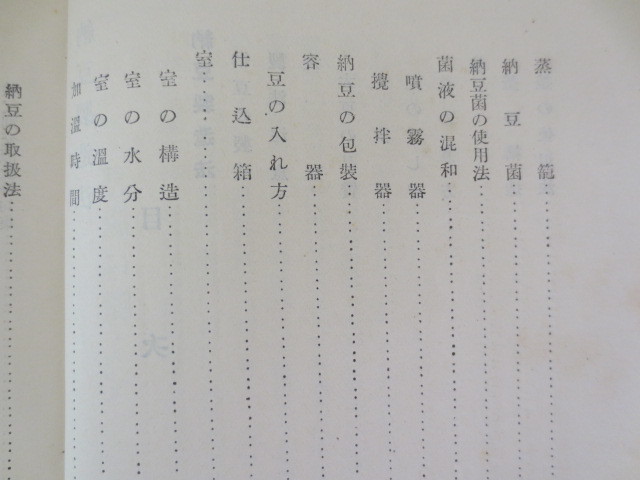 蒸籠
納豆菌
納豆菌の使用法
菌液の混和
噴霧器
攪拌器
納豆の包裝
容器
豆の入れ方
仕込箱
室
室の構造
室の水分
室の溫度
加溫時間
納豆の取扱法